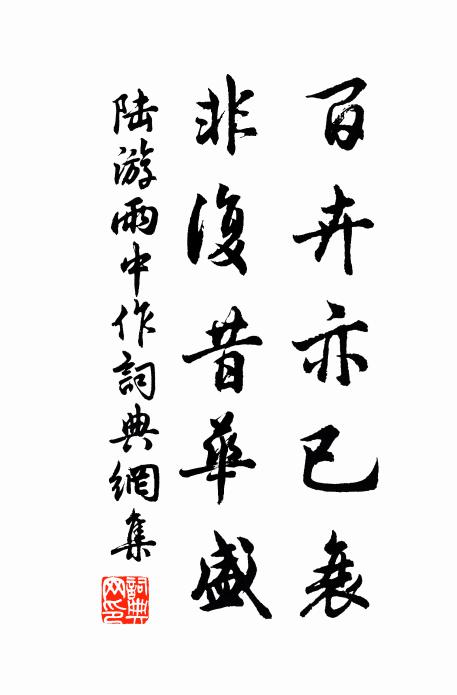 百卉亦已衰
非復昔華盛
陸游雨中作詞典網集
詞典
网印